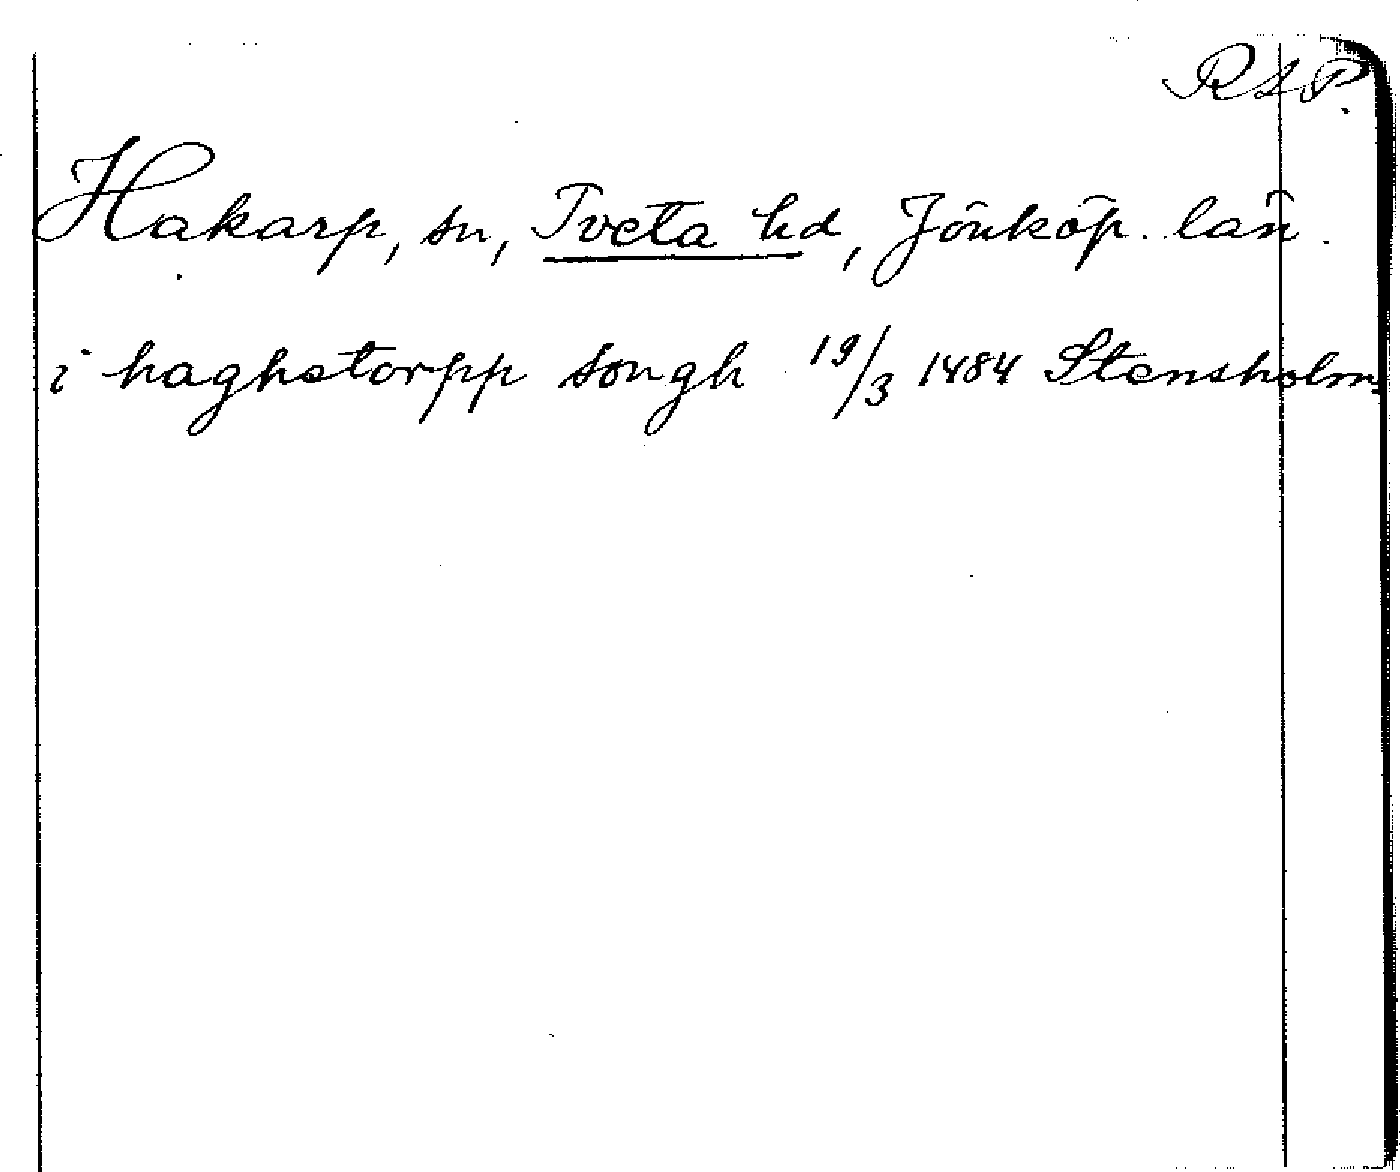 RAP.
Hakarp, sn, Tveta hd, Jönköp. län.
i haghatorpp songh 19/3 1484 Stensholm.